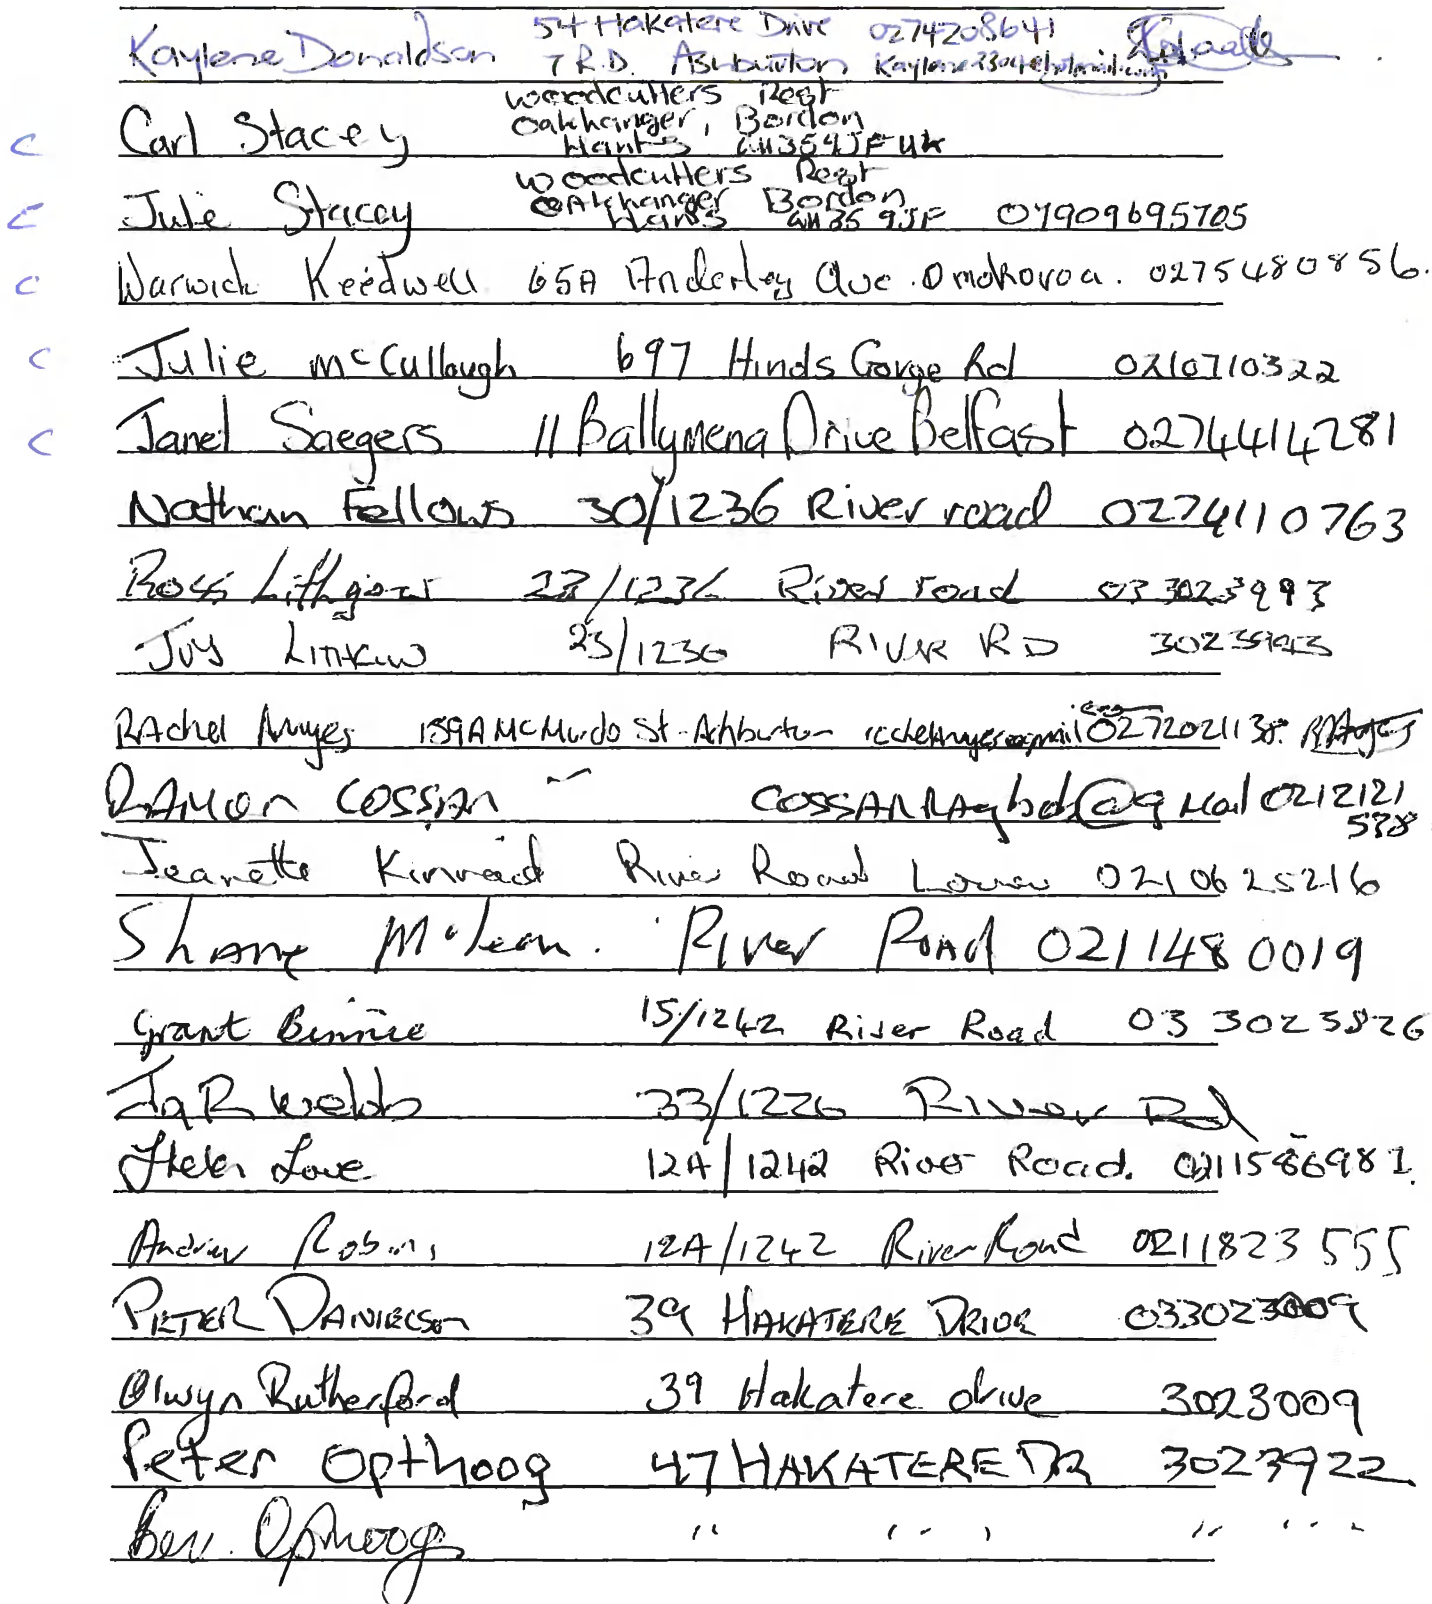 Kaylene Donaldson 54 Hakatere Drive 0274208641
7 R.D. Ashburton
Carl Stacey Woodcutters Rest
Oakhanger, Bordon
Hants GU359JF UK
C
Julie Stacey Woodcutters Rest
Oakhanger Bordon
Hants GU35 9JF 07909695705
C
C Warwick Keedwell 65A Anderley Ave. Omokoroa. 0275480856.
C Julie McCullough 697 Hinds Gorge Rd 0210710322
C Janet Saegers 11 Ballymena Drive Belfast 0274414281
Nathan Fellows 30/1236 River road 0274110763
Ross Lithgow 23/1236 River road 03 3023993
Joy 23/1236 RIVER RD
RAchel Amyes 159A McMurdo St - Ashburton 0272021138.
RAMON COSSAR 0212121
578
Jeanette Kinnaid River Road Lower 0210625216
Shane McLean. River Road 0211480019
Grant Binnie 15/1242 River Road 03 3023826
J Q R Webb 33/1226 River Rd
Helen Love 12A/1242 River Road. 0211586981.
Andrew Robins 12A/1242 River Road 0211823555
PETER DANIELSON 39 HAKATERE DRIVE 033023009
Olwyn Rutherford 39 Hakatere drive 3023009
Peter Opthoog 47 HAKATERE DR 3023922
Bev. Opthoog " " " " "